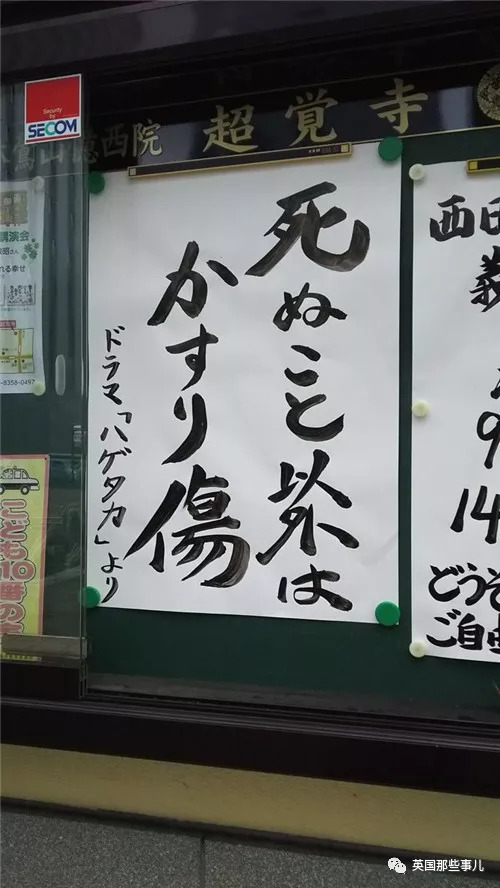 Security
by
SECOM
徳西院
超覚寺
死ぬこと以外は
かすり傷
ドラマ「ハゲタカ」より
講演会
れる幸せ
-8358-0497
こども10番の
西田
義
9
14
どうぞ
ご自由
英国那些事儿